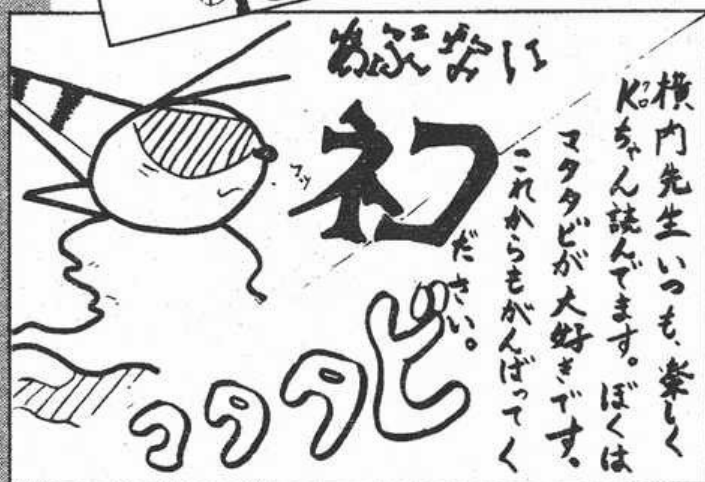 横内先生いつも、楽しく
Kちゃん読んでます。ぼくは
マタタビが大好きです。
これからもがんばってく
ださい。
ネコ
フッ
マタタビ